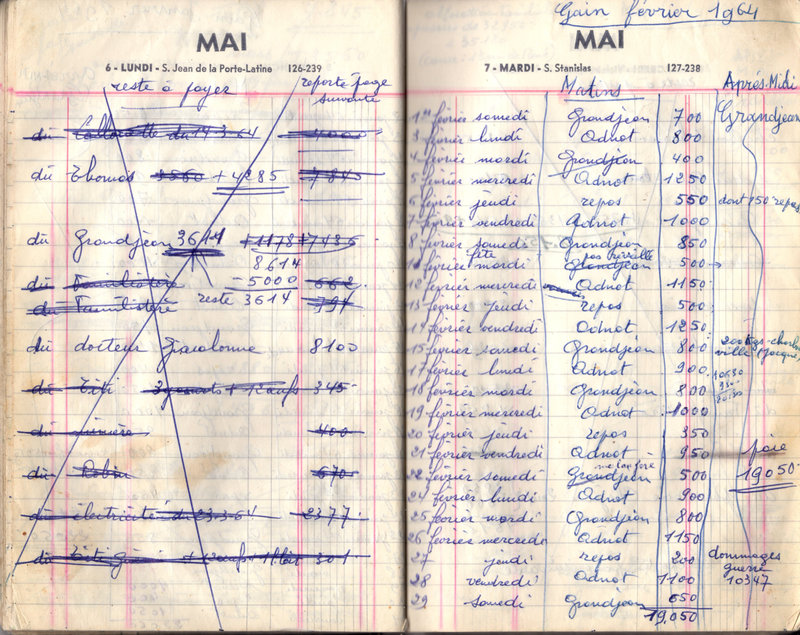 MAI
6 - LUNDI - S. Jean de la Porte-Latine 126-239
reste à payer reporte page
suivante
dû Collorette du 14.3.64 4000
dû Thomas 3560 + 4285 7845
dû Grandjean 3614 +1178 7486
8614
dû Familistère - 5000 662
reste 3614
dû Familistère 794
dû docteur Giacolonne 8100
dû Titi + 12 œufs 345
dû 400
dû Robin 670
dû électricité du 23.3.64 2377
dû + 12 œufs + 1 lait 301
Gain février 1964
MAI
7 - MARDI - S. Stanislas 127-238
Matins Après-Midi
1er février samedi Grandjean 700 Grandjean
3 février lundi Adnot 800
4 février mardi Grandjean 400
5 février mercredi Adnot 1250
6 février jeudi repos 550 dont 150 repas
7 février vendredi Adnot 1000
8 février samedi Grandjean 850
fête pas travaillé
11 février mardi Grandjean 500
12 février mercredi Adnot 1150
13 février jeudi repos 500
14 février vendredi Adnot 1250
15 février samedi Grandjean 800
17 février lundi Adnot 900
18 février mardi Grandjean 800
19 février mercredi Adnot 1000
20 février jeudi repos 350
21 février vendredi Adnot 950
22 février samedi Grandjean 500 19.050
24 février lundi Adnot 900
25 février mardi Grandjean 800
26 février mercredi Adnot 1150
27 jeudi repos 200 dommages
guerre
28 vendredi Adnot 1100 10347
29 samedi Grandjean 650
19,050